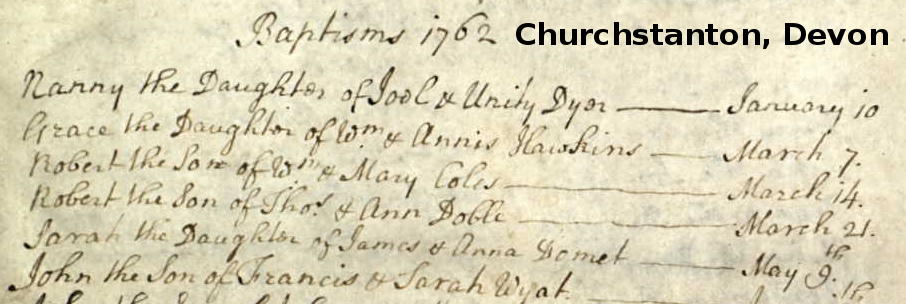 Baptisms 1762 Churchstanton, Devon
Nanny the Daughter of Joel & Unity Dyer — January 10
Grace the Daughter of Wm. & Annis Hawkins — March 7.
Robert the Son of Wm. & Mary Coles — March 14.
Robert the Son of Thos. & Ann Doble — March 21.
Sarah the Daughter of James & Anna Domet — May 9.th
John the Son of Francis & Sarah Wyat. — th